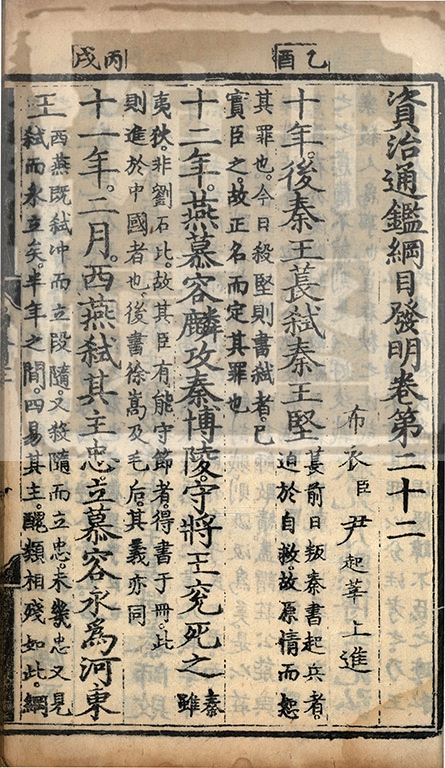 乙酉
丙戌
資治通鑑綱目發明卷第二十二
布衣臣尹起莘上進
十年。後秦王萇弒秦王堅
萇前日叛秦書起兵者。
迫於自救。故原情而恕
其罪也。今日殺堅則書弒者已
實臣之。故正名而定其罪也
十二年。燕慕容麟攻秦博陵。守將王兗死之
秦
雖
夷狄。非劉石比。故其臣有能守節者。得書于冊。此
則進於中國者也。後書徐嵩及毛后。其義亦同
十一年。二月。西燕弒其主忠。立慕容永為河東
王
西燕既弒冲而立段隨。又殺隨而立忠。未幾忠又見
弒而永立矣。半年之間。四易其主。醜類相殘如此。綱